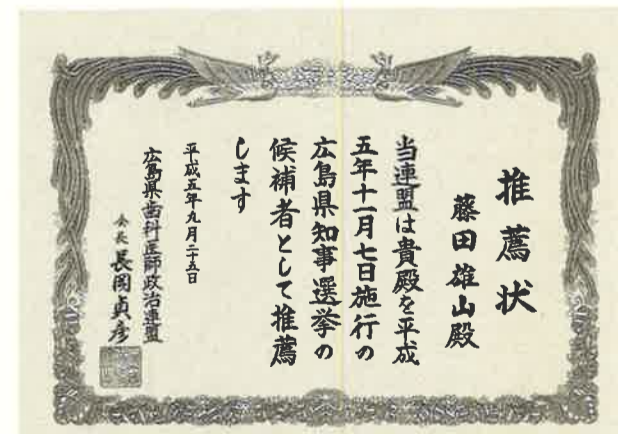 推薦状
藤田雄山殿
当連盟は貴殿を平成
五年十一月七日施行の
広島県知事選挙の
候補者として推薦
します
平成五年九月二十五日
広島県歯科医師政治連盟
会長 長岡貞彦